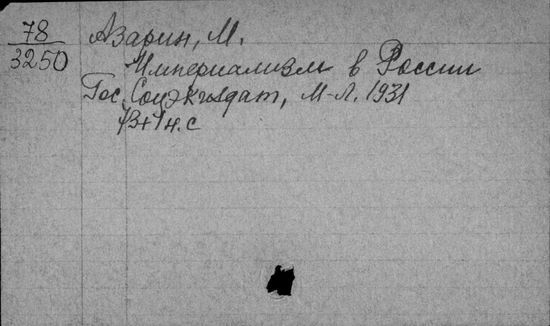 78
3250
Азарин, М.
Империализм в России
Гос. Соцэкиздат, М-Л. 1931
73+1 н. с